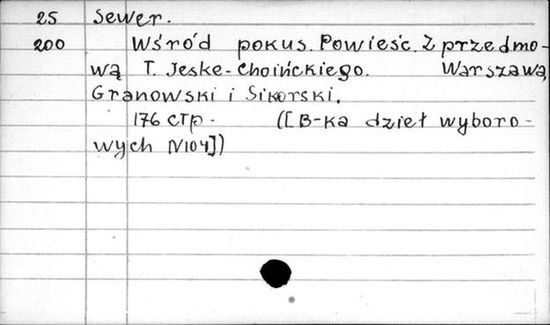 25 Sewer.
200 Wśród pokus. Powieść. Z przedmo-
wą T. Jeske-Choińckiego. Warszawa,
Granowski i Sikorski.
176 стр. ([B-ka dzieł wyboro-
wych N104])